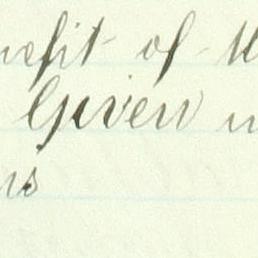 nefit of th
Given u
ns